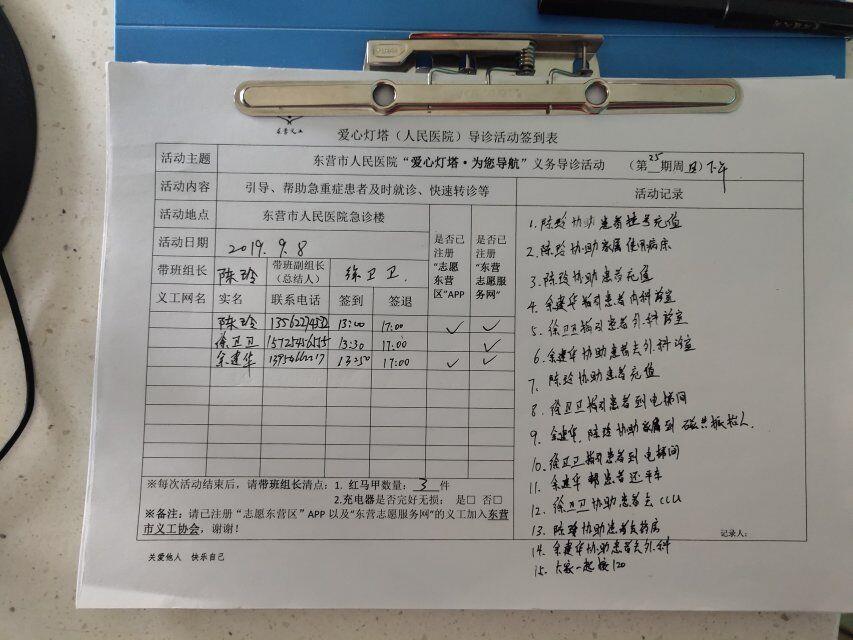 爱心灯塔（人民医院）导诊活动签到表
活动主题 东营市人民医院“爱心灯塔·为您导航”义务导诊活动 （第25期周日）下午
活动内容 引导、帮助急重症患者及时就诊、快速转诊等 活动记录
活动地点 东营市人民医院急诊楼
活动日期 2019.9.8
是否已注册“志愿东营区”APP
是否已注册“东营志愿服务网”
带班组长 陈玲 带班副组长（总结人） 徐卫卫
义工网名 实名 联系电话 签到 签退
陈玲 13:00 17:00 ✓ ✓
徐卫卫 13:30 17:00 ✓
余建华 17:00 ✓ ✓
※每次活动结束后，请带班组长清点：1. 红马甲数量：3 件
2.充电器是否完好无损： 是□ 否□
※备注：请已注册“志愿东营区”APP 以及“东营志愿服务网”的义工加入东营
市义工协会，谢谢！
关爱他人 快乐自己
1. 陈玲协助患者挂号充值
2. 陈玲协助家属使用病床
3. 陈玲协助患者充值
4. 余建华指引患者内科诊室
5. 徐卫卫指引患者外科诊室
6. 余建华协助患者去外科诊室
7. 陈玲协助患者充值
8. 徐卫卫指引患者到电梯间
9. 余建华、陈玲协助家属到磁共振抬人.
10. 徐卫卫指引患者到电梯间
11. 余建华帮患者还平车
12. 徐卫卫协助患者去CCU
13. 陈玲协助患者去药房
14. 余建华协助患者去外科
15. 大家一起接120
记录人：